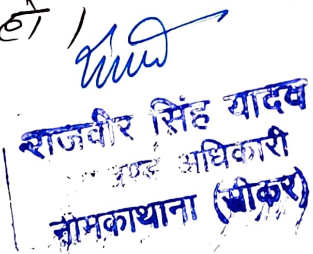 हो।
राजवीर सिंह यादव
अधिकारी
नीमकाथाना (सीकर)